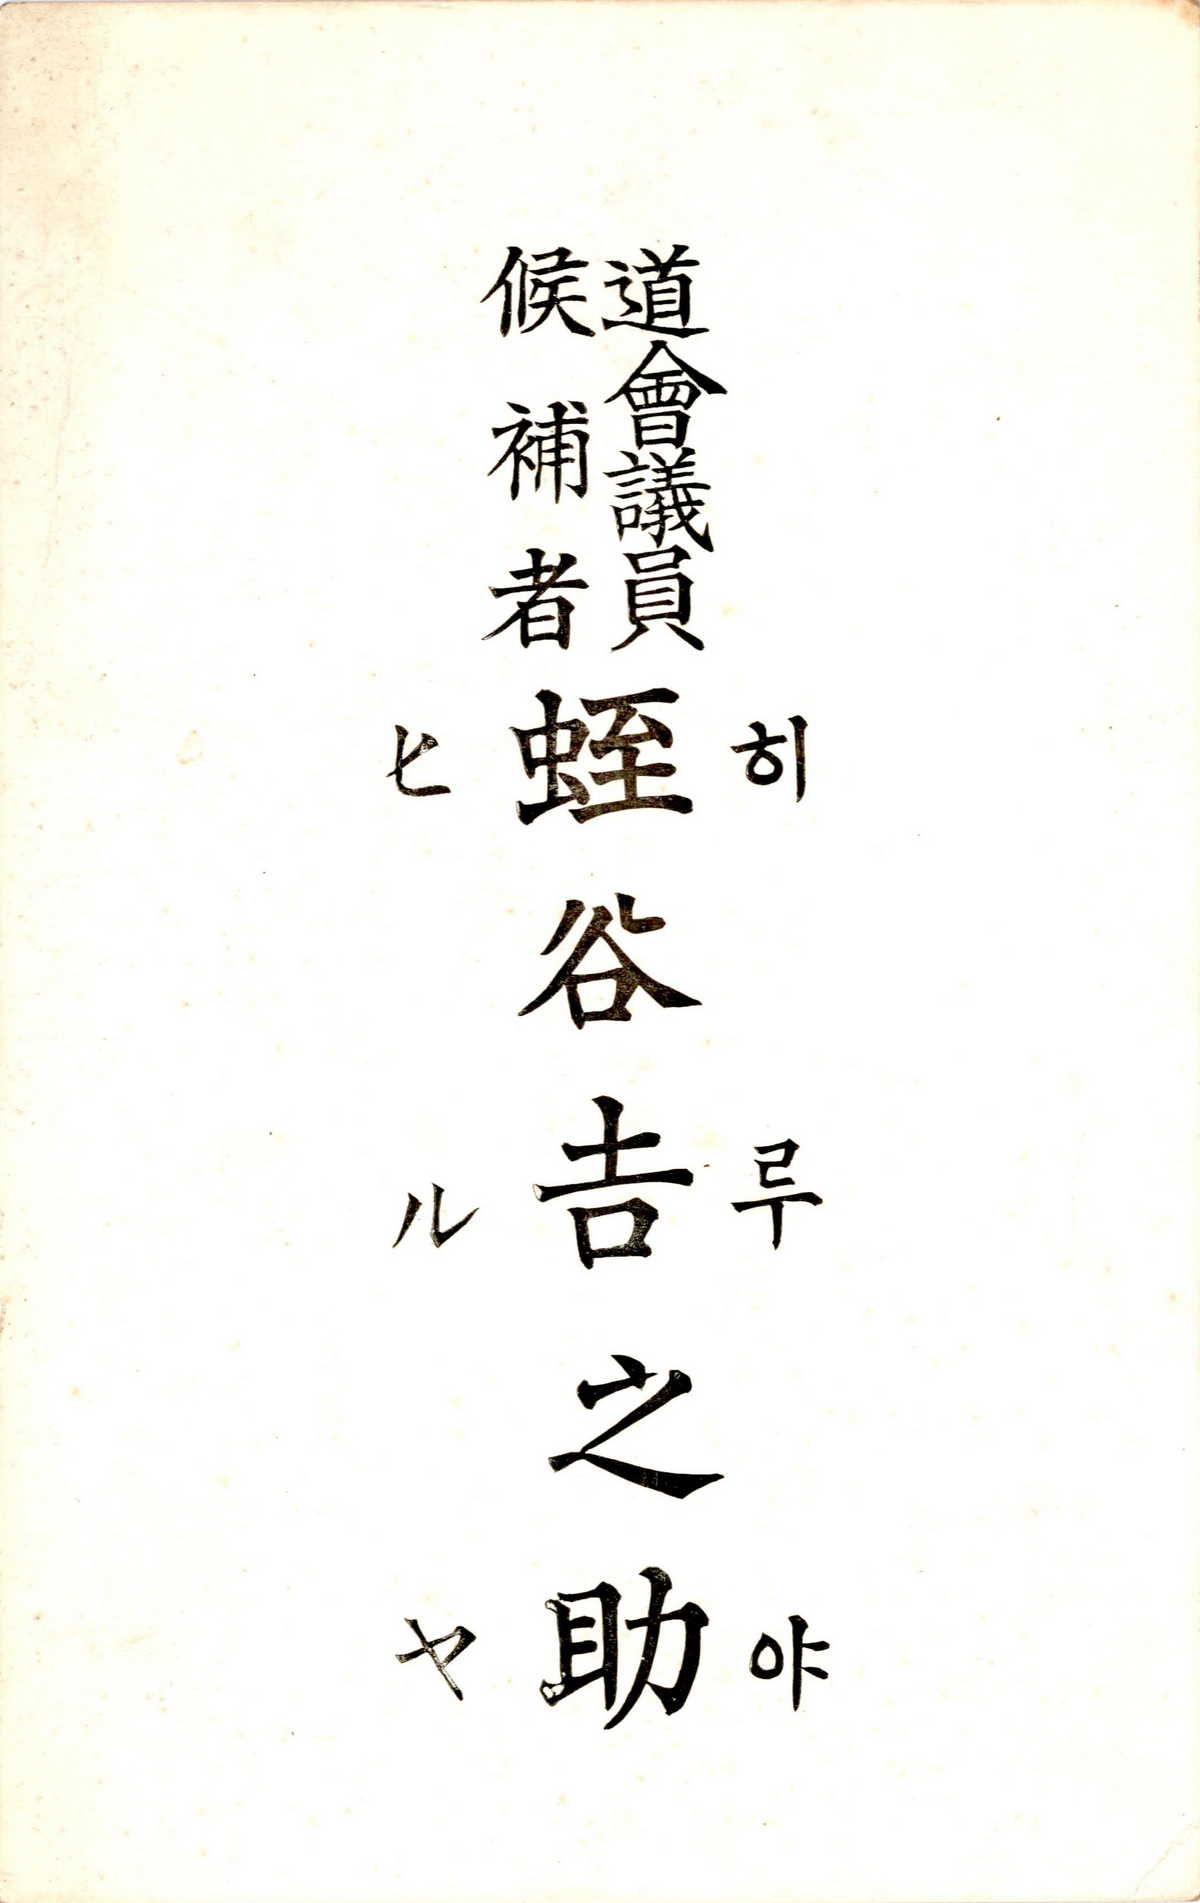 道會議員
候補者
蛭谷吉之助
히루야
ヒルヤ